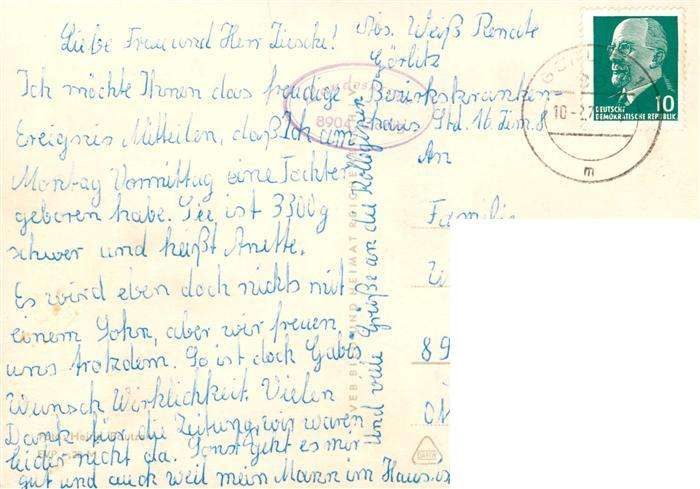 Liebe Frau und Herr Zieschs!
Ich möchte Ihnen das freudige
Ereignes Mitteilen, daß Ich am
Montag Vormittag eine Tochter
geboren habe. Sie ist 3300g
schwer und heißt Anette.
Es wird eben doch nichts mit
einem Sohn, aber wir freuen
uns trotzdem. So ist doch Gabis
Wunsch Wirklichkeit. Vielen
Dank für die Zeitung, wir waren
leider nicht da. Sonst geht es mir
gut und auch weil mein Mann im Haus
und viele Grüße an die Kollegen
Abs. Weiß Renate
Görlitz
Bezirkskranken-
haus Std. 16 Zim. 8
An
Familie
89
8904
10
DEUTSCHE
DEMOKRATISCHE REPUBLIK
10-2.7
m
VEB BILD UND HEIMAT REICHENBACH